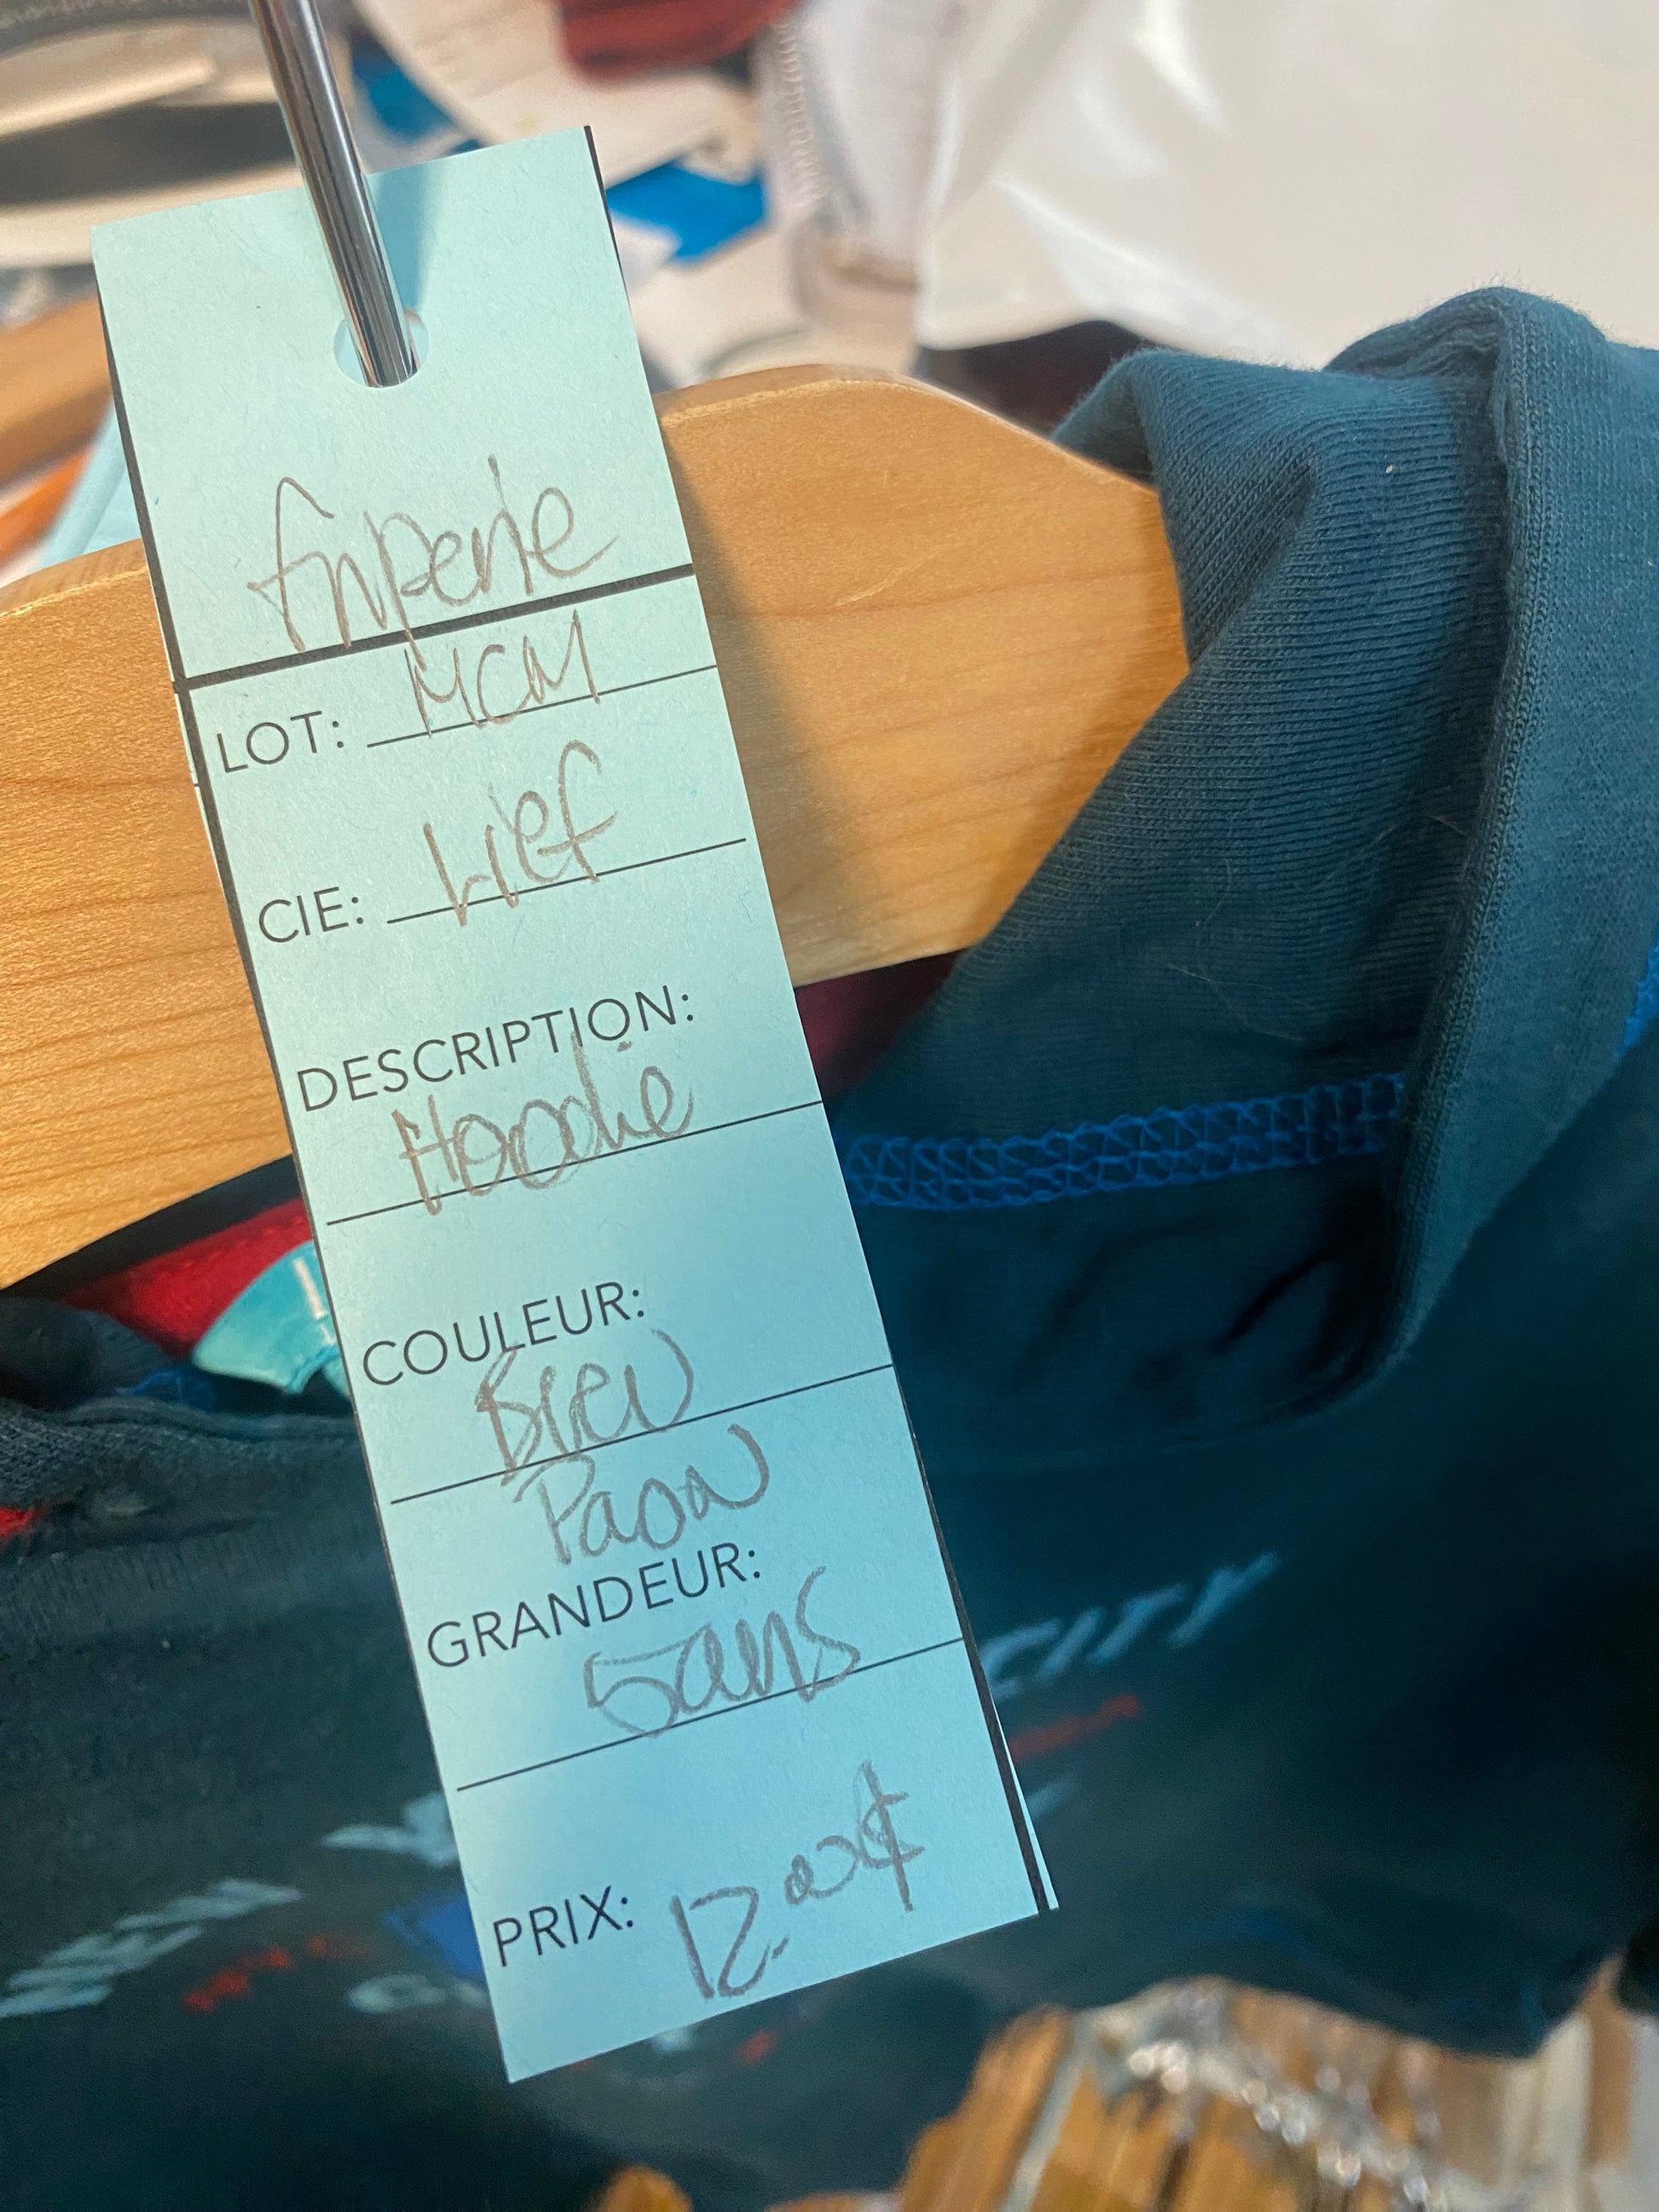 friperie
LOT: MCM
CIE: Lief
DESCRIPTION:
Hoodie
COULEUR:
Bleu
Paon
GRANDEUR:
5ans
PRIX: 12.00$
CITY